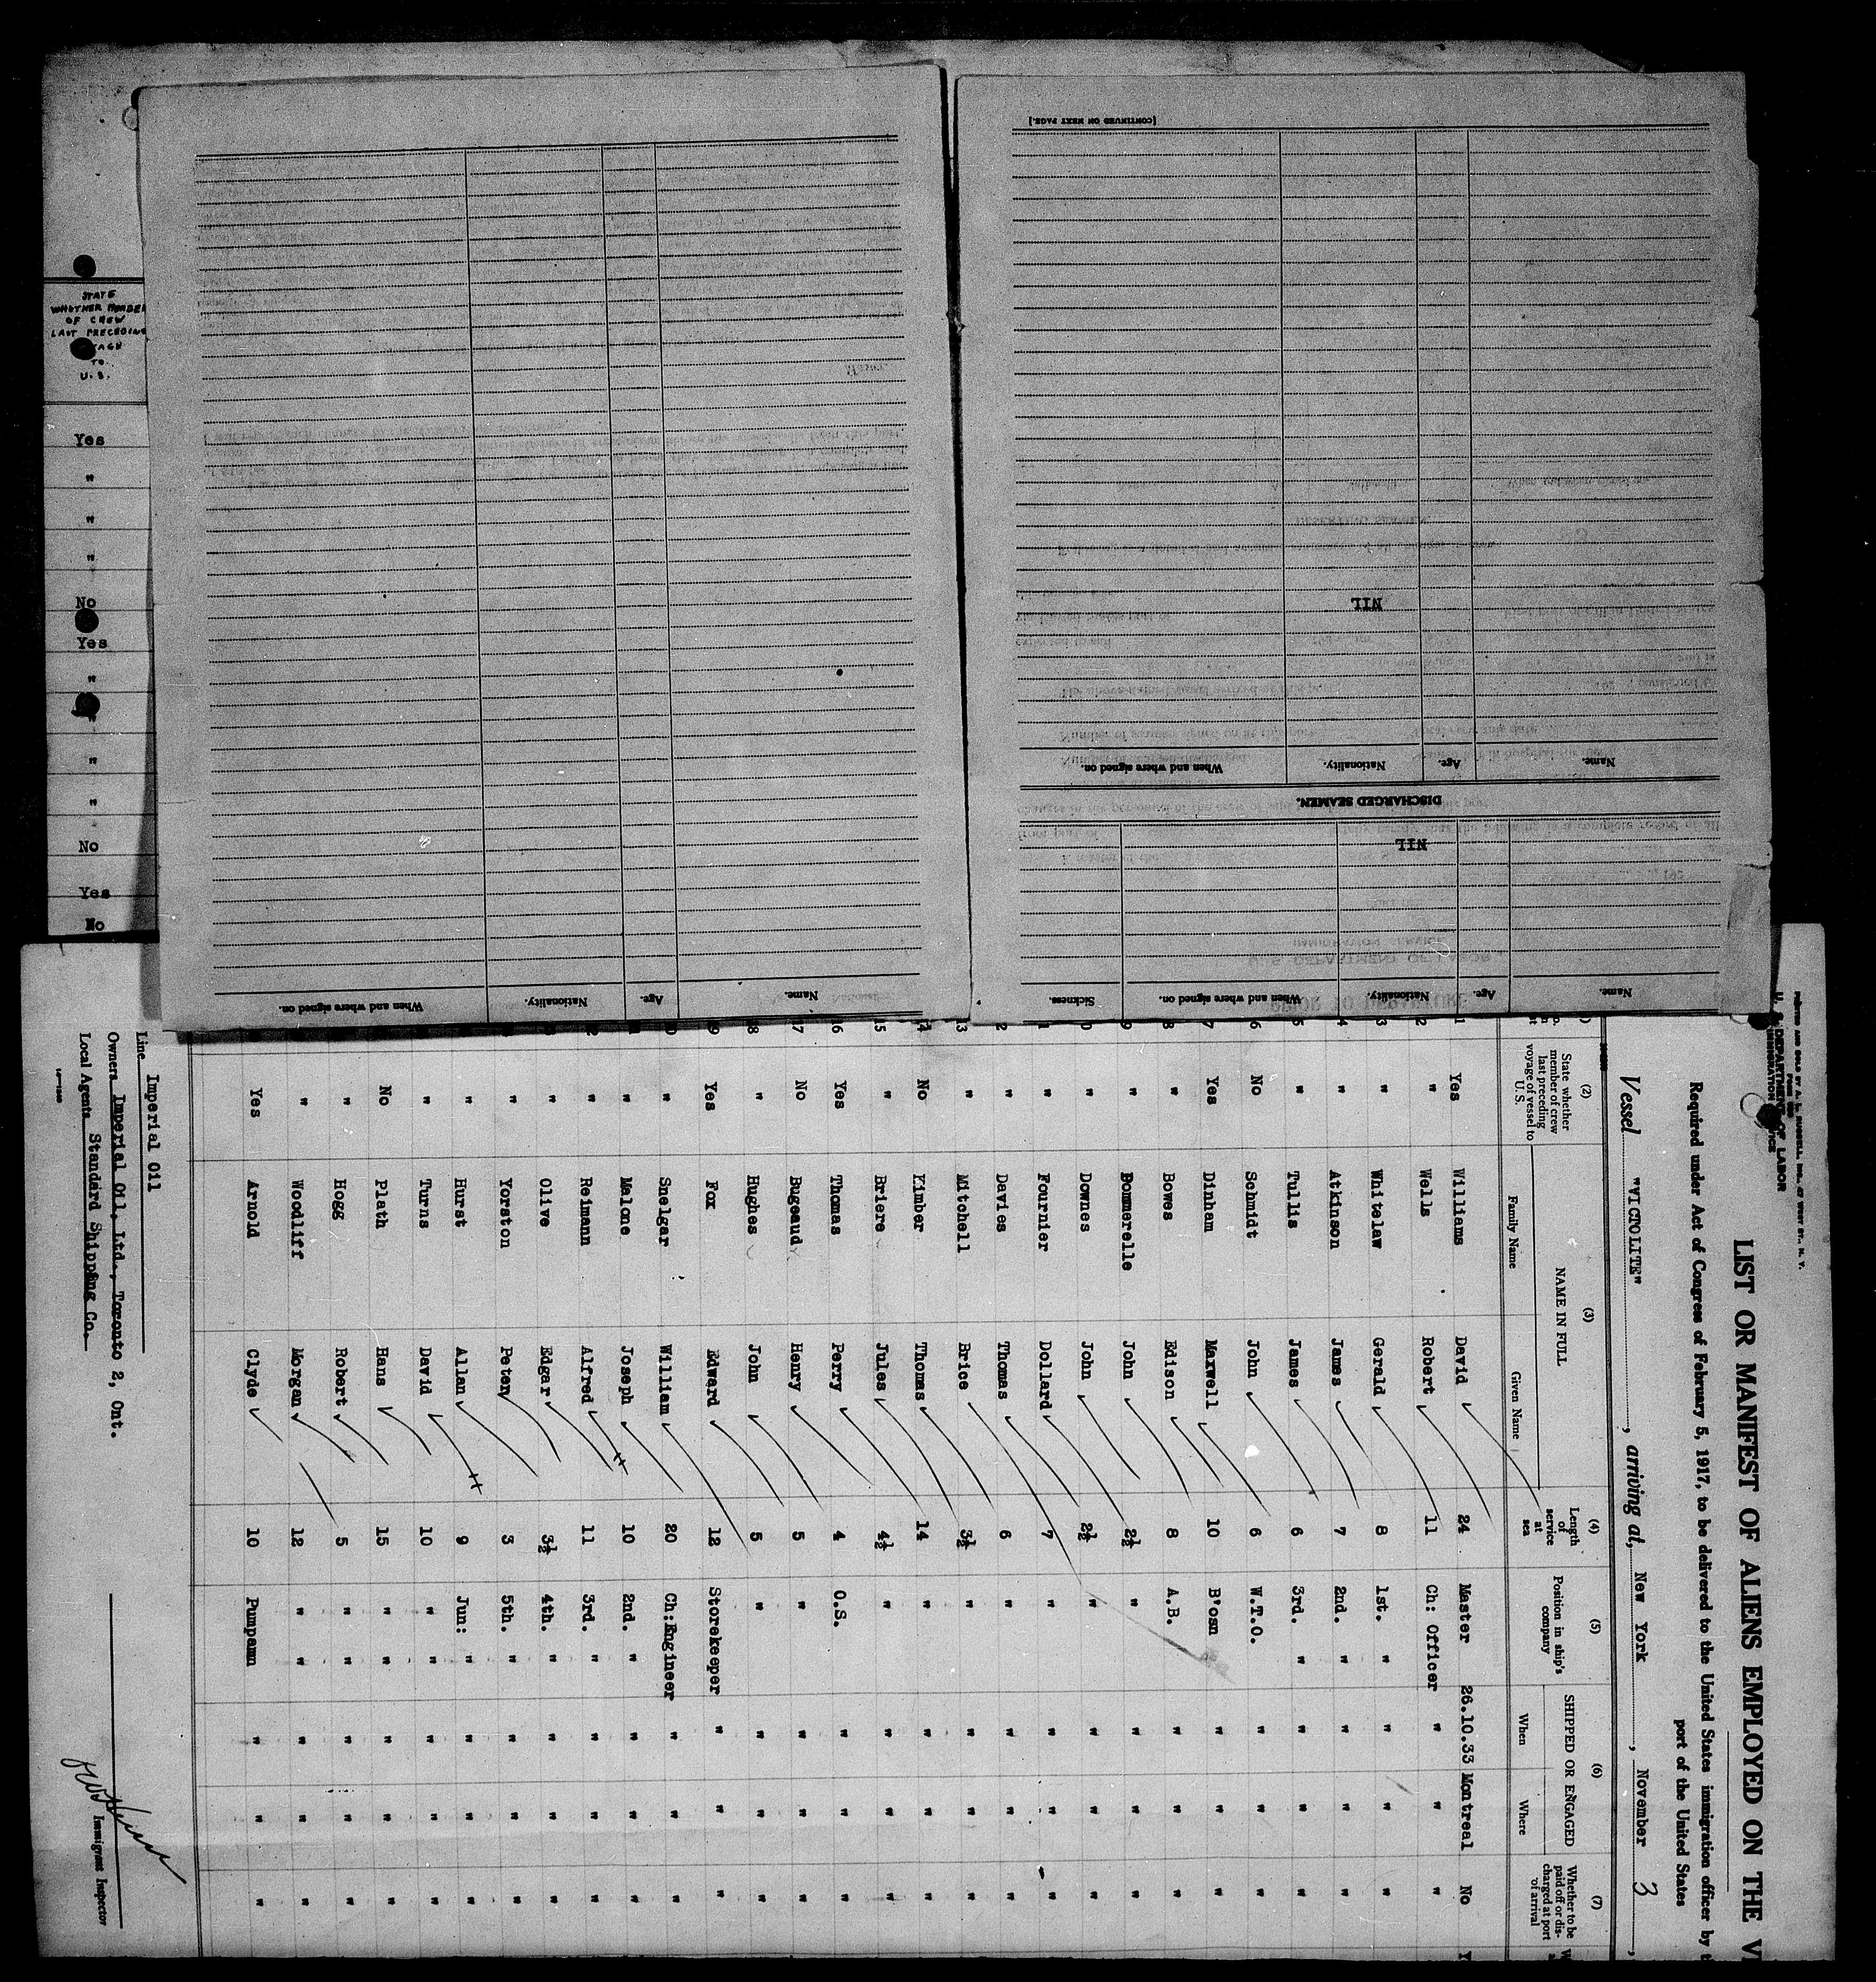 PRINTED AND SOLD BY A. L. RUSSELL, INC., 47 WEST ST., N. Y.
U. S. DEPARTMENT OF LABOR
LIST OR MANIFEST OF ALIENS EMPLOYED ON THE
Required under Act of Congress of February 5, 1917, to be delivered to the United States immigration officer by
port of the United States
Vessel "VICTOLITE", arriving at, New York, November 3,
(2) (3) (4) (5) (6) (7)
State whether member of crew last preceding voyage of vessel to U.S.
NAME IN FULL
Family Name Given Name
Length of service at sea
Position in ship's company
SHIPPED OR ENGAGED
When Where
Whether to be paid off or discharged at port of arrival
1 Yes Williams David 24 Master 26.10.33 Montreal No
2 " Wells Robert 11 Ch: Officer " " "
3 " Whitelaw Gerald 8 1st. " " " "
4 " Atkinson James 7 2nd. " " " "
5 " Tullis James 6 3rd. " " " "
6 No Schmidt John 6 W.T.O. " " "
7 Yes Dinham Maxwell 10 B'osn " " "
8 " Bowes Edison 8 A.B. " " "
9 " Pommerelle John 2½ " " " "
0 " Downes John 2½ " " " "
1 " Fournier Dollard 7 " " " "
2 " Davies Thomas 6 " " " "
13 " Mitchell Brice 3½ " " " "
14 No Kimber Thomas 14 " " " "
15 " Briere Jules 4½ " " " "
16 Yes Thomas Perry 4 O.S. " " "
17 No Bugeaud Henry 5 " " " "
18 " Hughes John 5 " " " "
19 Yes Fox Edward 12 Storekeeper " " "
" Snelgar William 20 Ch:Engineer " " "
" Malone Joseph 10 2nd. " " " "
" Reimann Alfred 11 3rd. " " " "
" Olive Edgar 3½ 4th. " " " "
" Yorston Peter 3 5th. " " " "
" Hurst Allan 9 Jun: " " " "
" Turns David 10 " " " " "
No Plath Hans 15 " " " " "
" Hogg Robert 5 " " " " "
" Woodliff Morgan 12 " " " " "
Yes Arnold Clyde 10 Pumpamn " " "
Line Imperial Oil
Owners Imperial Oil, Ltd., Toronto 2, Ont.
Local Agents Standard Shipping Co.
Immigrant Inspector
STATE
WHETHER MEMBER
OF CREW
LAST PRECEDING
TO
U. S.
Yes
"
"
"
No
Yes
"
"
"
"
No
Yes
No
Name. Age. Nationality. When and where signed on. Sickness.
NIL
DISCHARGED SEAMEN.
Name. Age. Nationality. When and where signed on.
NIL
[CONTINUED ON NEXT PAGE.]
Name. Age. Nationality. When and where signed on.